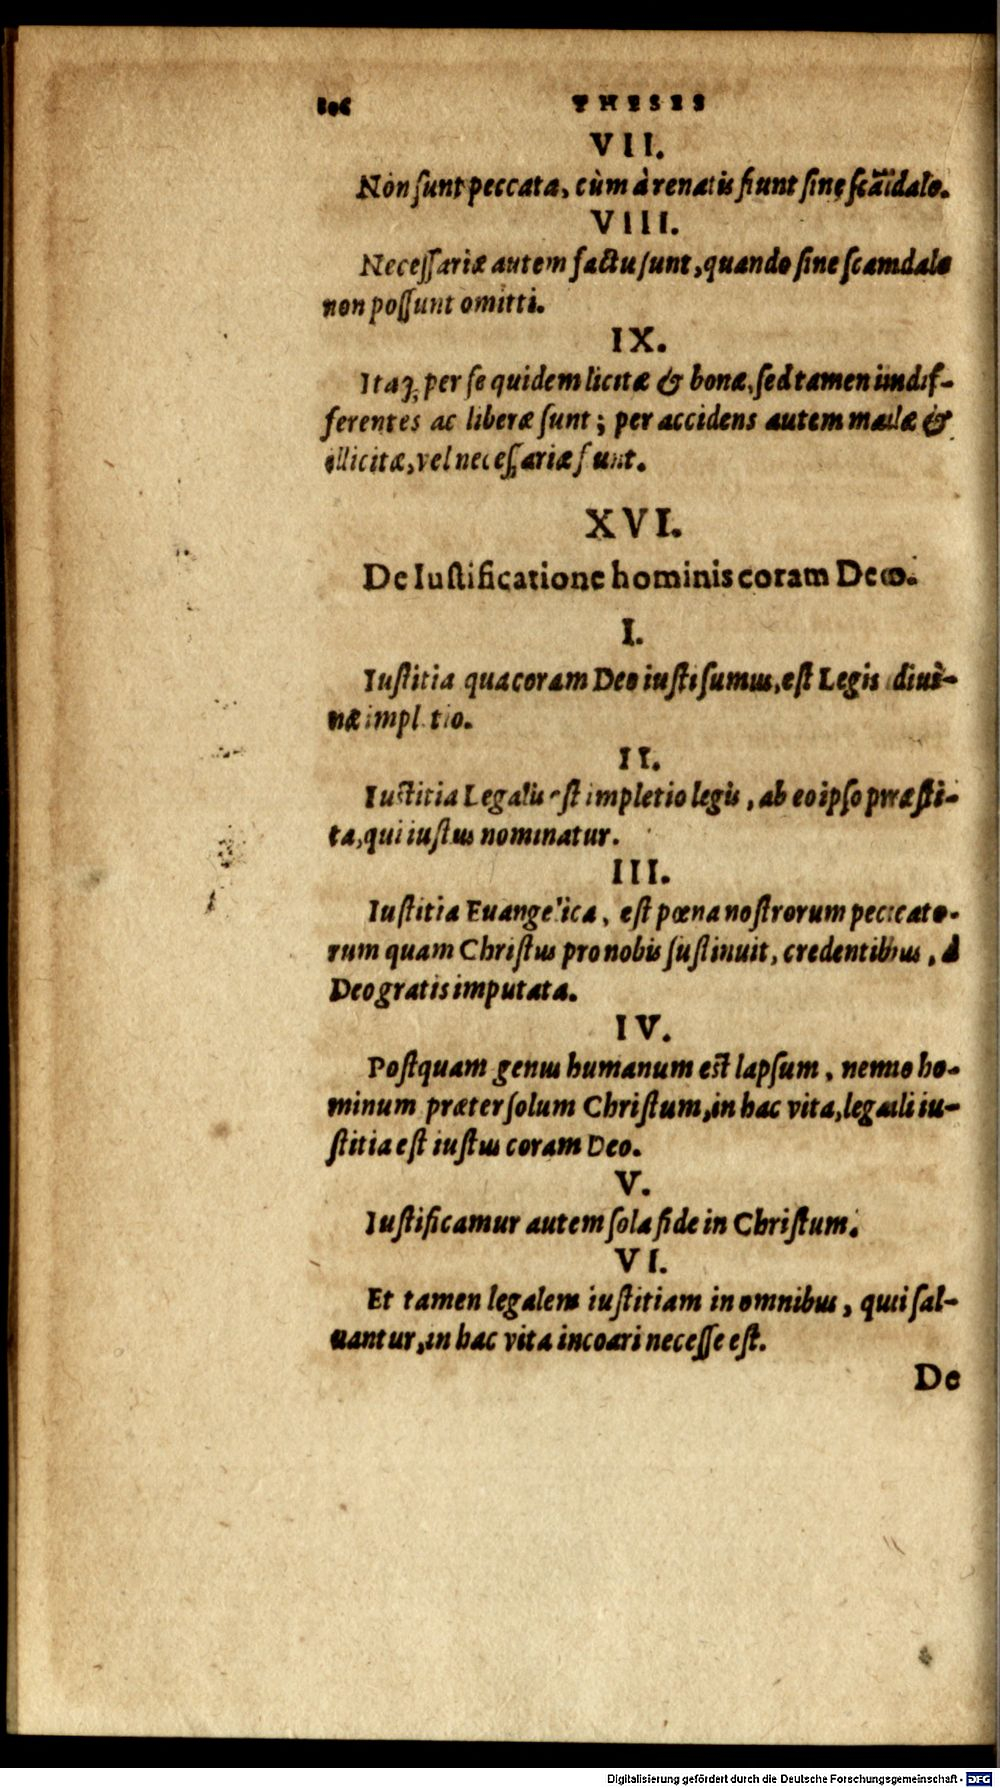 806 THESES
VII.
Non sunt peccata, cùm à renatis fiunt sine scãdalo.
VIII.
Necessariæ autem factu sunt, quando sine scandalo
non possunt omitti.
IX.
Itaq; per se quidem licitæ & bonæ, sed tamen indif-
ferentes ac liberæ sunt; per accidens autem malæ &
illicitæ, vel necessariæ sunt.
XVI.
De Iustificatione hominis coram Deo.
I.
Iustitia qua coram Deo iusti sumus, est Legis diui-
næ impletio.
II.
Iustitia Legalis est impletio legis, ab eo ipso præsti-
ta, qui iustus nominatur.
III.
Iustitia Euangelica, est pœna nostrorum peccato-
rum quam Christus pro nobis sustinuit, credentibus, à
Deo gratis imputata.
IV.
Postquam genus humanum est lapsum, nemo ho-
minum præter solum Christum, in hac vita, legali iu-
stitia est iustus coram Deo.
V.
Iustificamur autem sola fide in Christum.
VI.
Et tamen legalem iustitiam in omnibus, qui sal-
uantur, in hac vita incoari necesse est.
De
Digitalisierung gefördert durch die Deutsche Forschungsgemeinschaft - DFG